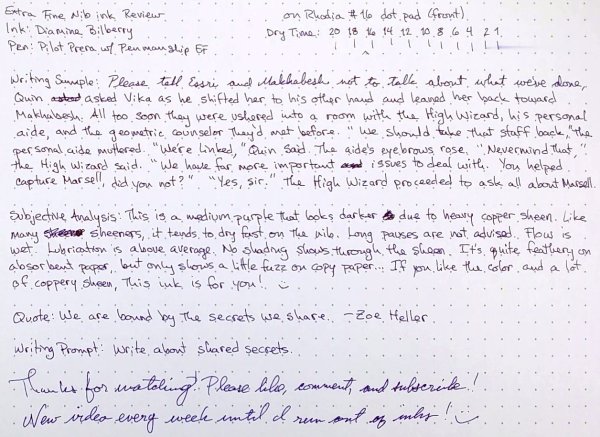 Extra Fine Nib ink Review
on Rhodia #16 dot pad (front)
Ink: Diamine Bilberry
Dry Time: 20 18 16 14 12 10 8 6 4 2 1
Pen: Pilot Prera w/ Penmanship EF
Writing Sample: Please tell Essri and Makhabesh not to talk about what we've done,
Quin asked Vika as he shifted her to his other hand and leaned her back toward
Makhabesh. All too soon they were ushered into a room with the High Wizard, his personal
aide, and the geometric counselor they'd met before. "We should take that staff back," the
personal aide muttered. "We're linked," Quin said. The aide's eyebrows rose. "Nevermind that,"
the High Wizard said. "We have far more important issues to deal with. You helped
capture Marsell, did you not?" "Yes, sir." The High Wizard proceeded to ask all about Marsell.
Subjective Analysis: This is a medium purple that looks darker due to heavy copper sheen. Like
many sheeners, it tends to dry fast on the nib. Long pauses are not advised. Flow is
wet. Lubrication is above average. No shading shows through the sheen. It's quite feathery on
absorbent paper, but only shows a little fuzz on copy paper... If you like the color and a lot
of coppery sheen, This ink is for you!
Quote: We are bound by the secrets we share. -Zoe Heller
Writing Prompt: Write about shared secrets.
Thanks for watching! Please like, comment, and subscribe!
New video every week until I run out of inks!